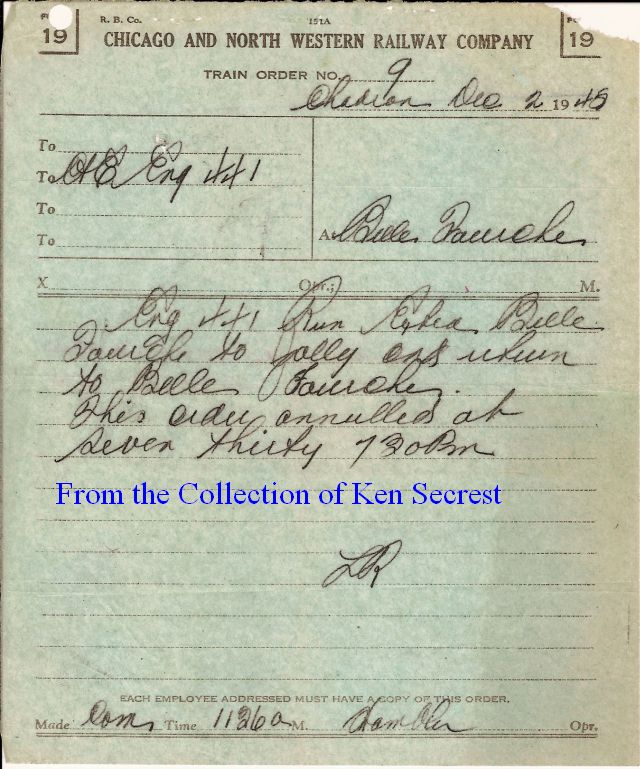 FORM 19 R. B. Co. 151A FORM 19
CHICAGO AND NORTH WESTERN RAILWAY COMPANY
TRAIN ORDER NO. 9
Chadron Dec 2 1945
To
To C&E Eng 441
To
To
At Belle Fourche
X Opr.; M.
Eng 441 Run Extra Belle
Fourche to Jolly and return
to Belle Fourche.
This order annulled at
seven thirty 730 Pm
From the Collection of Ken Secrest
EACH EMPLOYEE ADDRESSED MUST HAVE A COPY OF THIS ORDER.
Made Com Time 1136 a M. Opr.